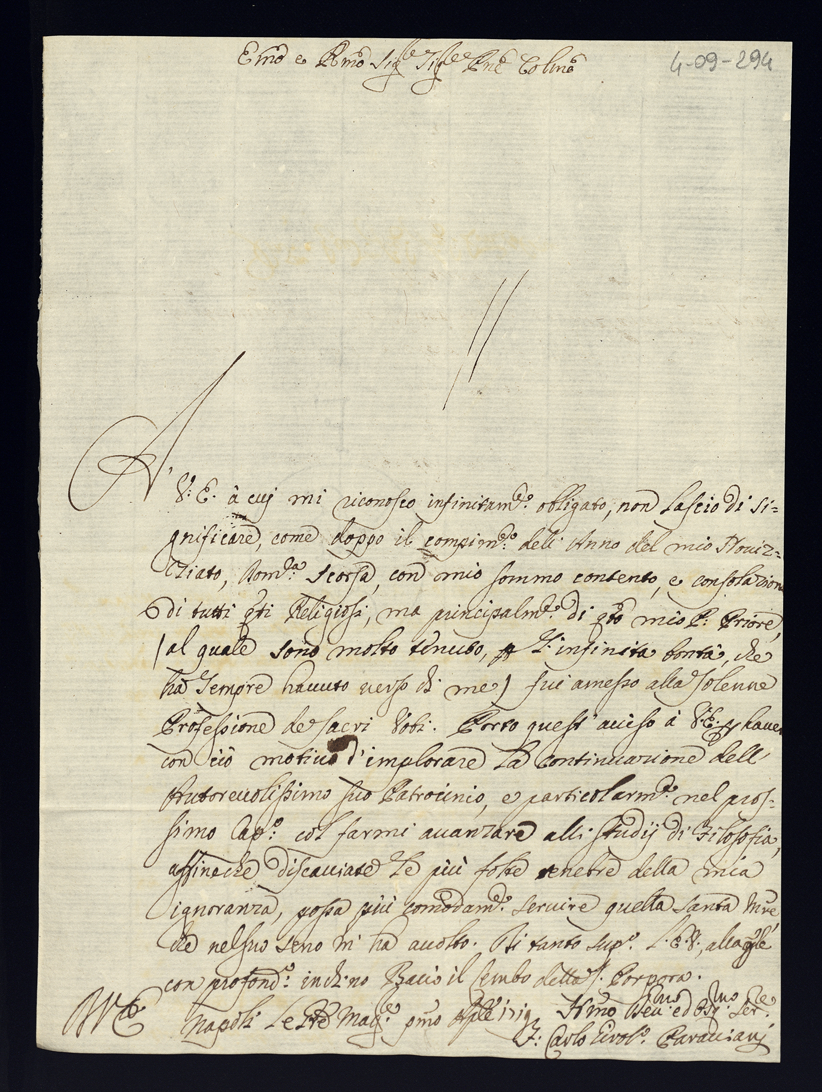 Emo e Rmo Sigre Sigre Pne Colmo
4-09-294
A V: E. à cuj mi riconosco infinitamte. obligato, non lascio di si=
gnificare, come doppo il compimto. dell'Anno del mio Noviz=
ziato, Domca. scorsa, con mio sommo contento, e consolazion
di tutti qti Religiosi, ma principalmte. di qto mio P: Priore,
(al quale sono molto tenuto, p l'infinita bontà, che
ha sempre havuto verso di me) fui amesso alla solenne
Professione de sacri Voti. Porto quest'aviso à V:E. p haver
con ciò motivo d'implorare la continuazione dell'
Autorevolissimo suo Patrocinio, e particolarmte. nel pros=
simo Capo. col farmi avanzare alli studij di Filosofia,
affinche discacciate le più folte tenebre della mia
ignoranza, possa più comodamte. servire questa Santa Mre
che nel suo seno m'ha accolto. Di tanto supco. l'E:V:, alla qle
con profondo. inchino Bacio il Lembo della S. Porpora.
Napoli pmo Aple 1719 Hmo Devmo ed Obmo Serre.
F: Carlo